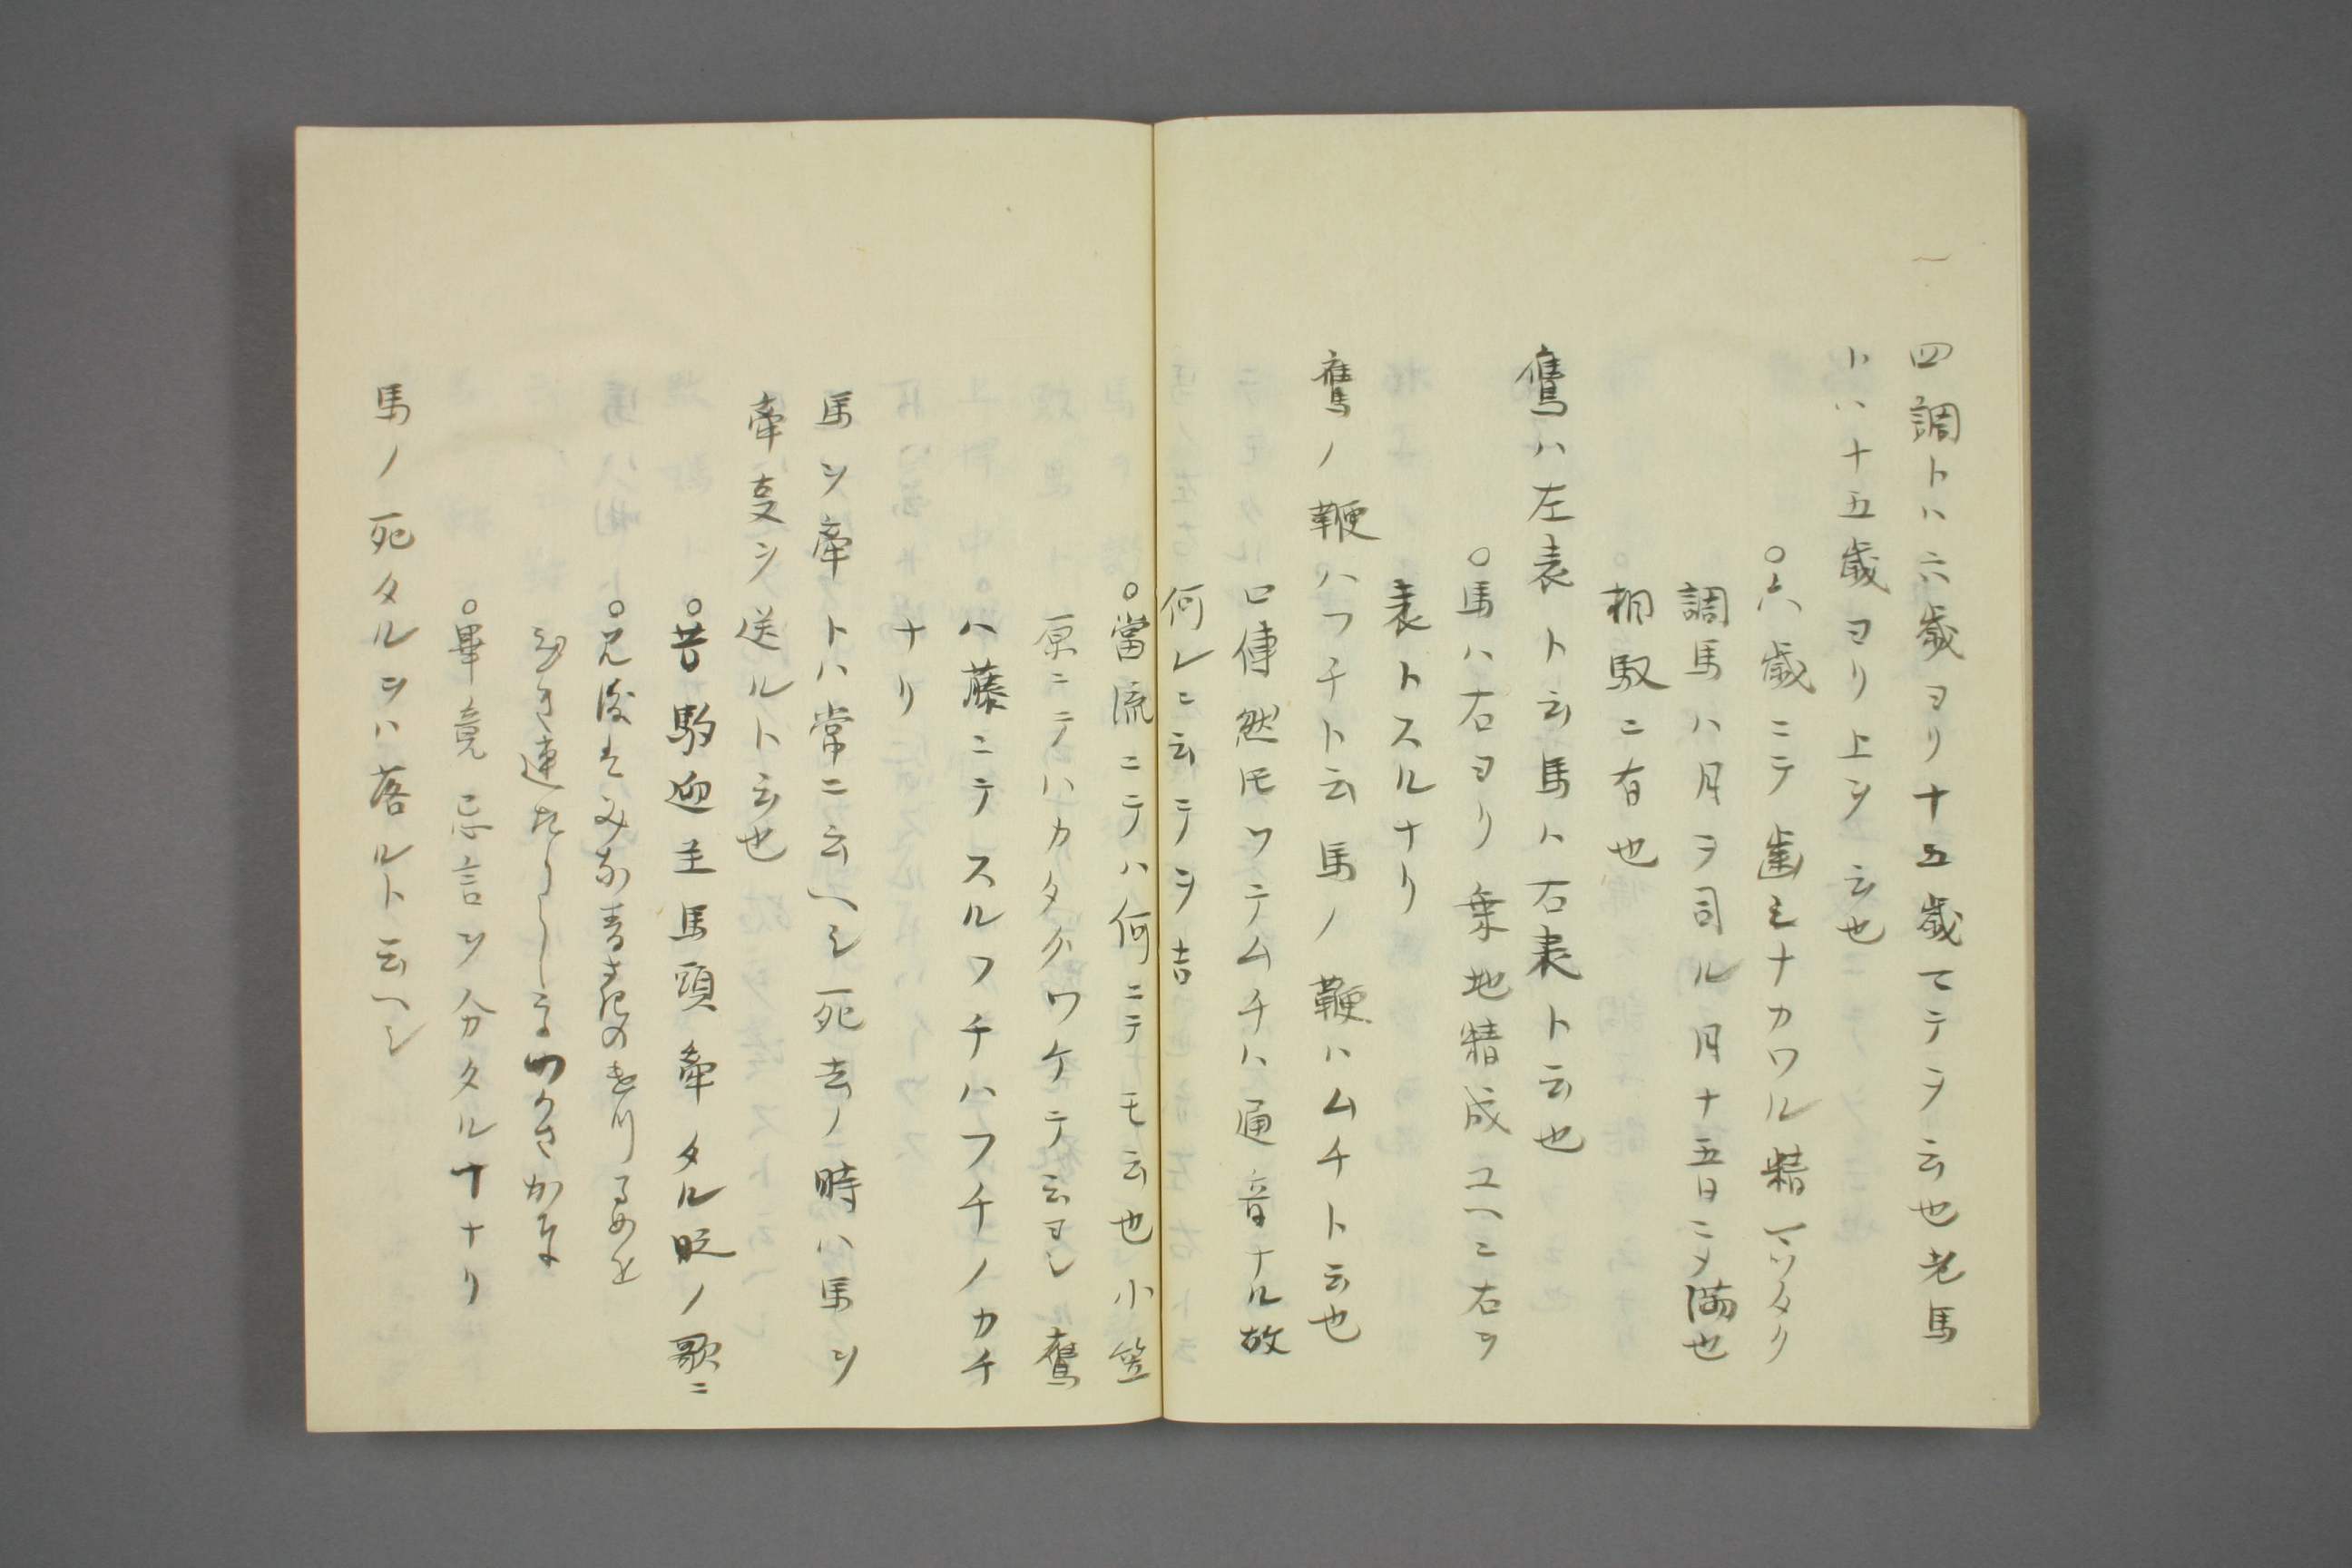 四調トハ六歳ヨリ十五歳マテヲ云也老馬
トハ十五歳ヨリ上ヲ云也
○六歳ニテ歯モナカワル精マツタク
調馬ハ月ヲ司ル月十五日ニメ満也
相馭ニ有也
鷹ハ左表ト云馬ハ右表ト云也
○馬ハ右ヨリ乗地精成ユヘニ右ヲ
表トスルナリ
鷹ノ鞭ハフチト云馬ノ鞭ハムチト云也
口傳然モフテムチハ通音ナル故
何レニ云テヲ吉
○當流ニテハ何ニテモ云也小笠
原ニテハカタクワケテ云ヨシ鷹
ハ藤ニテスルフチハフチノカチ
ナリ
馬ヲ牽トハ常ニ云ヘシ死去ノ時ハ馬ヲ
牽支ヲ送ルト云也
○昔駒迎主馬頭牽タル時ノ歌ニ
ひき連た
○畢竟忌言ヲ分タルナリ
馬ノ死タルヲハ落ルト云ヘシ